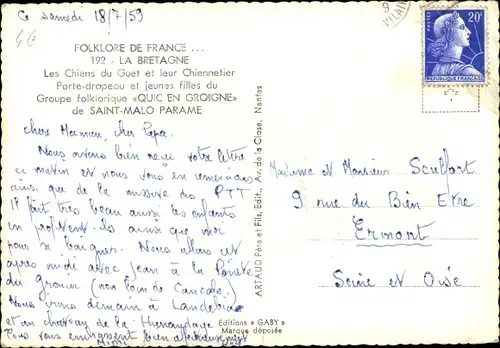 Ce samedi 18/7/59
4€
FOLKLORE DE FRANCE ...
192 - LA BRETAGNE
Les Chiens du Guet et leur Chiennetier
Porte-drapeau et jeunes filles du
Groupe folklorique «QUIC EN GROIGNE»
de SAINT-MALO PARAME
9
VILAI
POSTES 20F
REPUBLIQUE FRANÇAISE
Chère Maman, cher Papa.
Nous avons bien reçu votre lettre
ce matin et nous vous en remercions
ainsi que de la missive des PTT
Il fait très beau aussi les enfants
en profitent ils ainsi que moi
pour se baigner. Nous allons cet
après midi avec Jean à la Pointe
du Grouin (non loin de Cancale)
Nous irons demain à
et au château de la Hunaudaye
Nous vous embrassons bien affectueusement
ARTAUD Père et Fils, Edit., Av. de la Close, Nantes
Madame et Monsieur Sculfort
9 rue du Bien Etre
Ermont
Seine et Oise
Editions « GABY »
Marque déposée